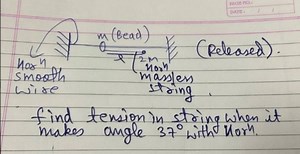 m (Bead)
l
2m
(Released).
Horⁿ
smooth
wire
Horⁿ
massless
string.
find tension in string when it
makes angle 37° with Horⁿ.